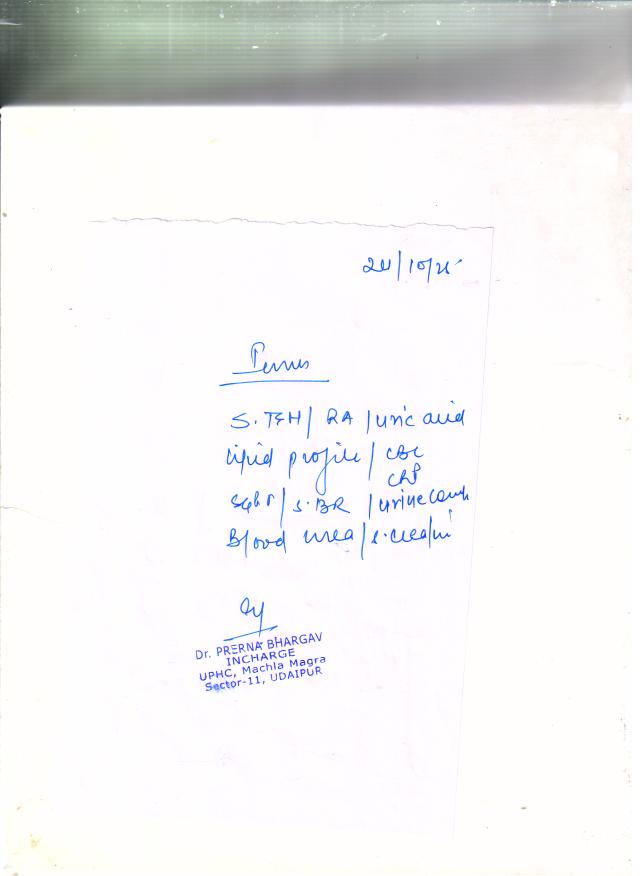 24/10/25
S. TSH / RA / uric acid
lipid profile / CBC
CRP
SGPT / S. BR / urine comp
Blood urea / s. creatini
Dr. PRERNA BHARGAV
INCHARGE
UPHC, Machla Magra
Sector-11, UDAIPUR